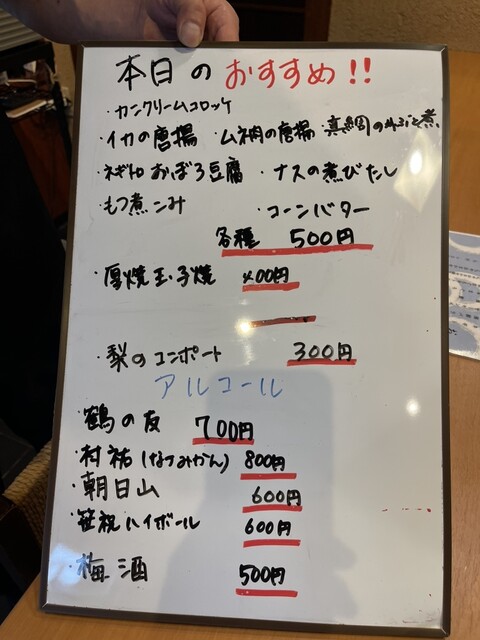 本日のおすすめ!!
・カンクリームコロッケ
・イカの唐揚 ・ムネ肉の唐揚 ・真鯛の煮
・ネギトロおぼろ豆腐 ・ナスの煮びたし
・もつ煮こみ ・コーンバター
各種 500円
・厚焼玉子焼 400円
・梨のコンポート 300円
アルコール
・鶴の友 700円
・村祐(なつみかん) 800円
・朝日山 600円
・笹祝ハイボール 600円
・梅酒 500円